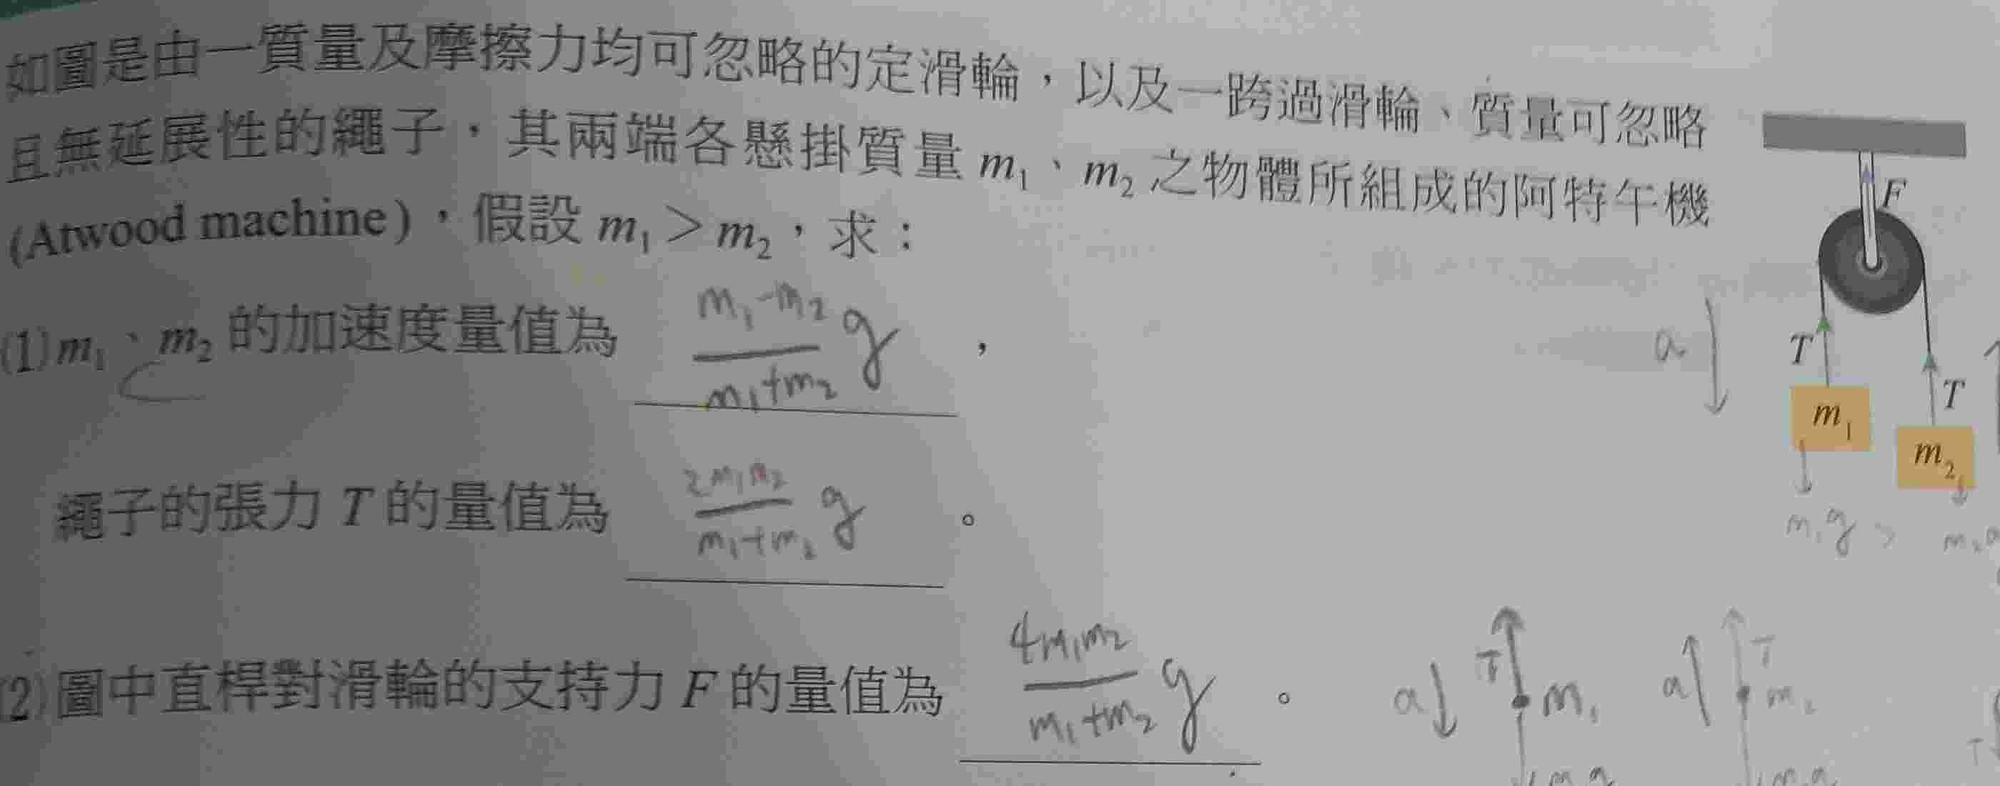 如圖是由一質量及摩擦力均可忽略的定滑輪，以及一跨過滑輪、質量可忽略
且無延展性的繩子，其兩端各懸掛質量 m₁、m₂ 之物體所組成的阿特午機
(Atwood machine)，假設 m₁ > m₂，求：
(1) m₁、m₂ 的加速度量值為 (m₁-m₂)/(m₁+m₂) g ，
繩子的張力 T 的量值為 2m₁m₂/(m₁+m₂) g 。
(2) 圖中直桿對滑輪的支持力 F 的量值為 4m₁m₂/(m₁+m₂) g 。
F
a
T
T
m₁
m₂
m₁g >
a T m₁
a T m₂